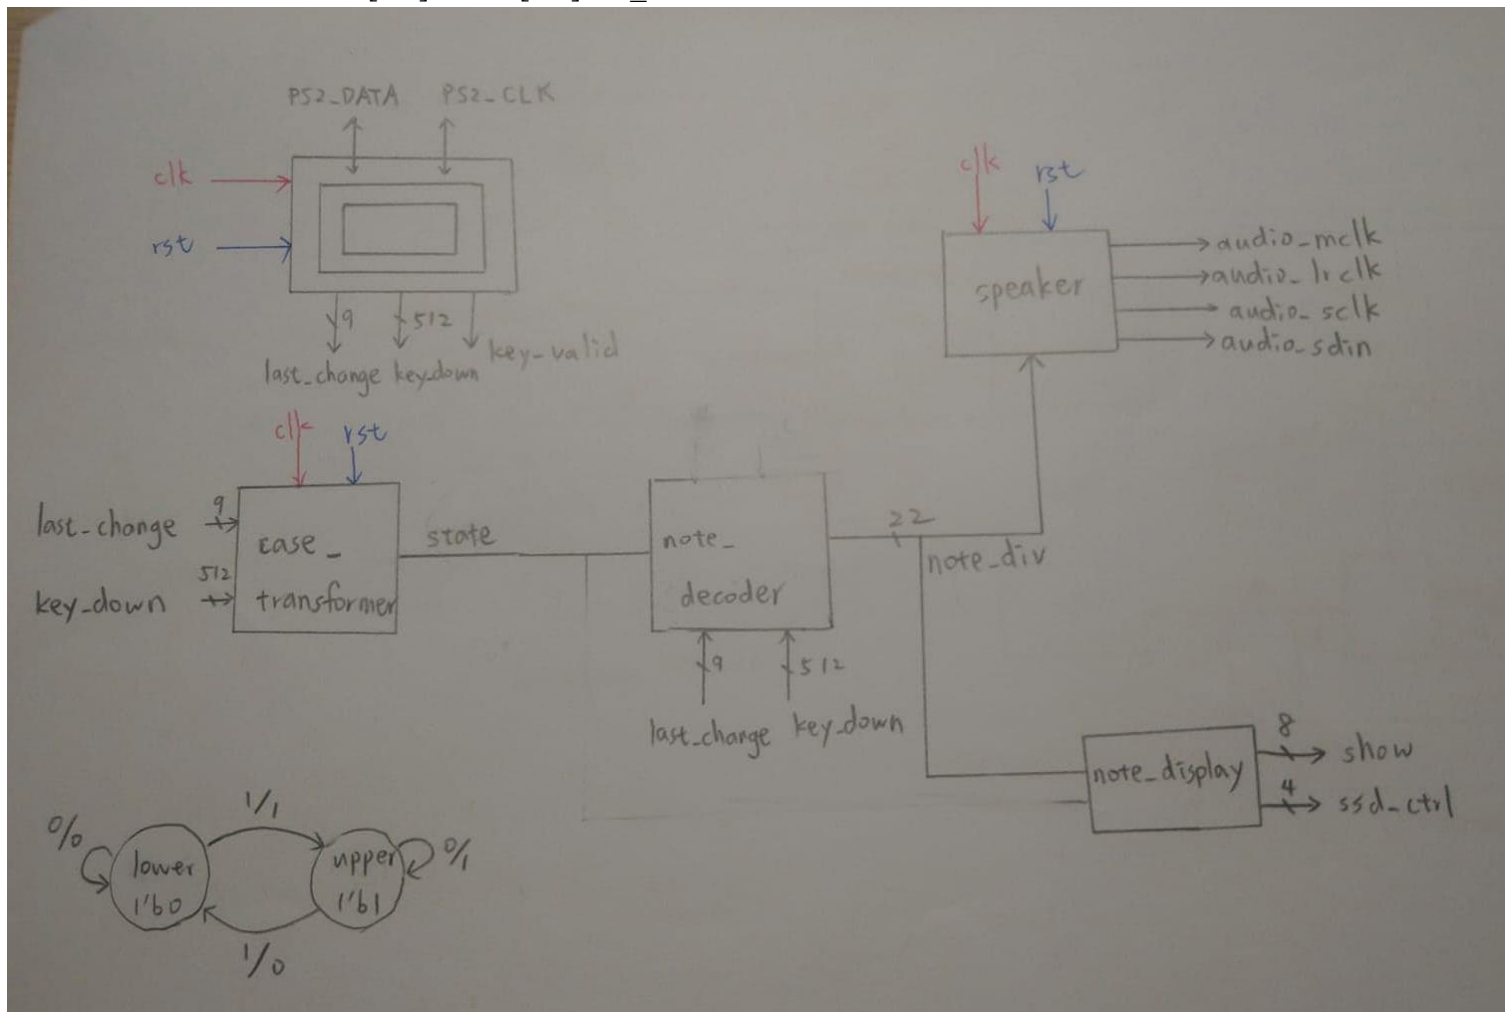 PS2_DATA PS2_CLK
clk
rst
9 512
last_change key_down key_valid
clk rst
speaker
audio_mclk
audio_lrclk
audio_sclk
audio_sdin
clk rst
last_change 9
key_down 512
case_
transformer
state
note_
decoder
22
note_div
9 512
last_change key_down
note_display
8 show
4 ssd_ctrl
0/0
1/1
lower
1'b0
upper
1'b1
0/1
1/0